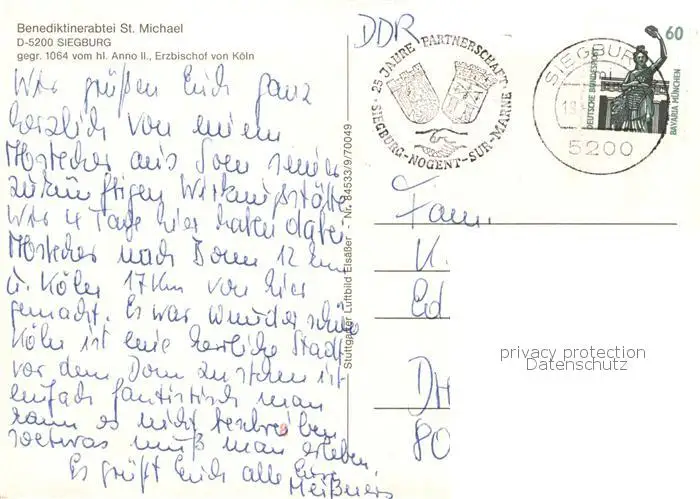 Benediktinerabtei St. Michael
D-5200 SIEGBURG
gegr. 1064 vom hl. Anno II., Erzbischof von Köln
Wir grüßen Euch ganz
herzlich von einem
Abstecher aus
zukünftigen Wirkungsstätte
Wir 4 Tage hier haten dabei
Abstecher nach Bonn 12 km
u. Köln 17 Km von hier
gemacht. Es war wunderschön
Köln ist eine herrliche Stadt
vor dem Dom zu stehen ist
einfach fantistisch man
kann es nicht beschreiben
soetwas muß man erleben.
Es grüßt Euch alle Eure
Meißners
Stuttgarter Luftbild Elsäßer - Nr. 84533/9/70049
DDR
25 JAHRE PARTNERSCHAFT
SIEGBURG-NOGENT-SUR-MARNE
SIEGBURG
5200
60
DEUTSCHE BUNDESPOST
BAVARIA MÜNCHEN
Fam.
K.
Ed
DH
80
privacy protection
Datenschutz